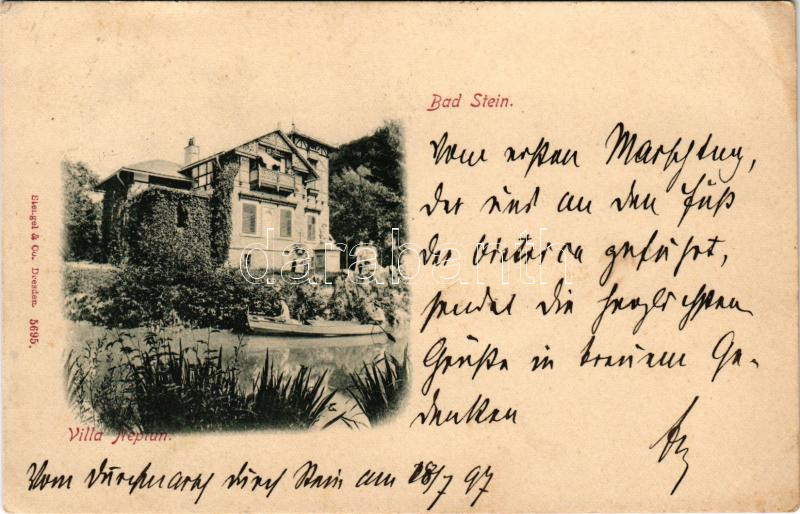 Bad Stein.
Vom ersten Marschtag,
der uns an den Fuß
der geführt,
sendet die herzlichsten
Grüße in treuem Ge-
denken
Stengel & Co. Dresden 5695.
darabanth.com
Villa Neptun.
Vom Durchmarsch durch Stein am 28/7 97